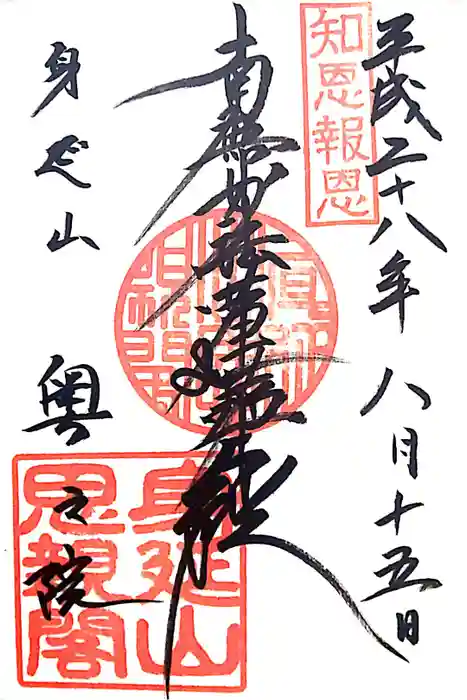 知恩報恩
平成二十八年 八月十五日
南無妙法蓮華経
身延山 奥之院
身延山
恩親閣